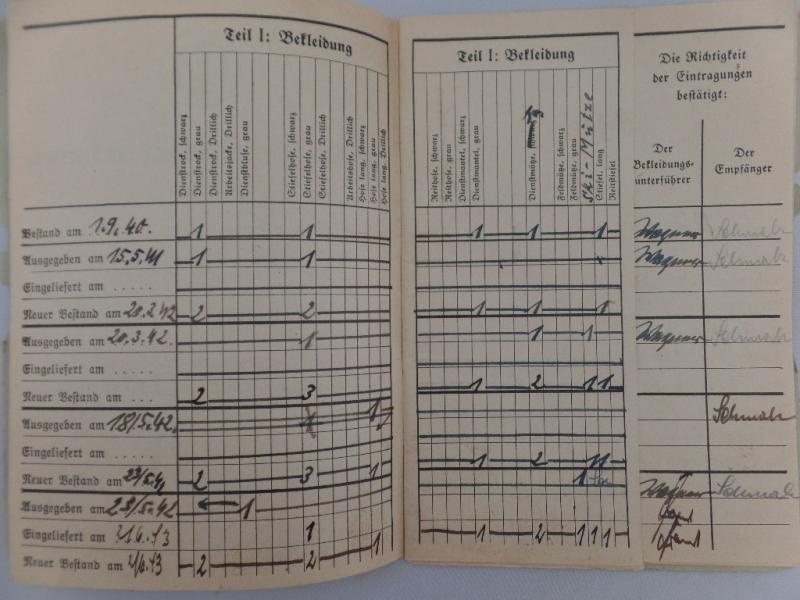 Teil I: Bekleidung
Dienstrock, schwarz
Dienstrock, grau
Dienstrock, Drillich
Arbeitsjacke, Drillich
Dienstbluse, grau
Stiefelhose, schwarz
Stiefelhose, grau
Stiefelhose, Drillich
Arbeitshose, Drillich
Hose lang, schwarz
Hose lang, grau
Hose lang, Drillich
Bestand am 1.9.40. 1 1
Ausgegeben am 15.5.41 1 1
Eingeliefert am . . . . .
Neuer Bestand am 20.2.42 2 2
Ausgegeben am 20.3.42. 1
Eingeliefert am . . . .
Neuer Bestand am . . . 2 3
Ausgegeben am 18/5.42. 1
Eingeliefert am . . . .
Neuer Bestand am 2 3 1
Ausgegeben am 1
Eingeliefert am 1
Neuer Bestand am 2 2 1
Teil I: Bekleidung
Reithose, schwarz
Reithose, grau
Dienstmantel, schwarz
Dienstmantel, grau
Dienstmütze,
Feldmütze, schwarz
Feldmütze, grau
Ski-Mütze
Stiefel, lang
Reitstiefel
1 1 1
1 1 1
1 1
1 2 1 1
1 2 1 1
1
1 2 1 1 1
Die Richtigkeit
der Eintragungen
bestätigt:
Der
Bekleidungs-
unterführer
Der
Empfänger
Wagner Schmalz
Wagner Schmalz
Wagner Schmalz
Schmalz
Wagner Schmalz